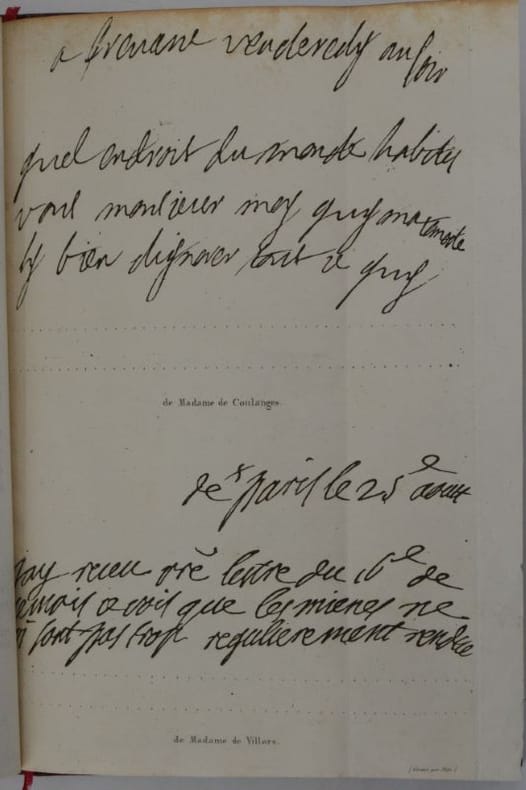 a frenane venderedy au soir
quel endroit du monde habites
vous monsieur moy quy ma
sy bien ditout ce quy
de Madame de Coulanges.
de paris le 25e aoust
Jay receu vre lettre du 16e de
ce mois je vois que les mienes ne
sont pas trop regulierement rendue
de Madame de Villars.